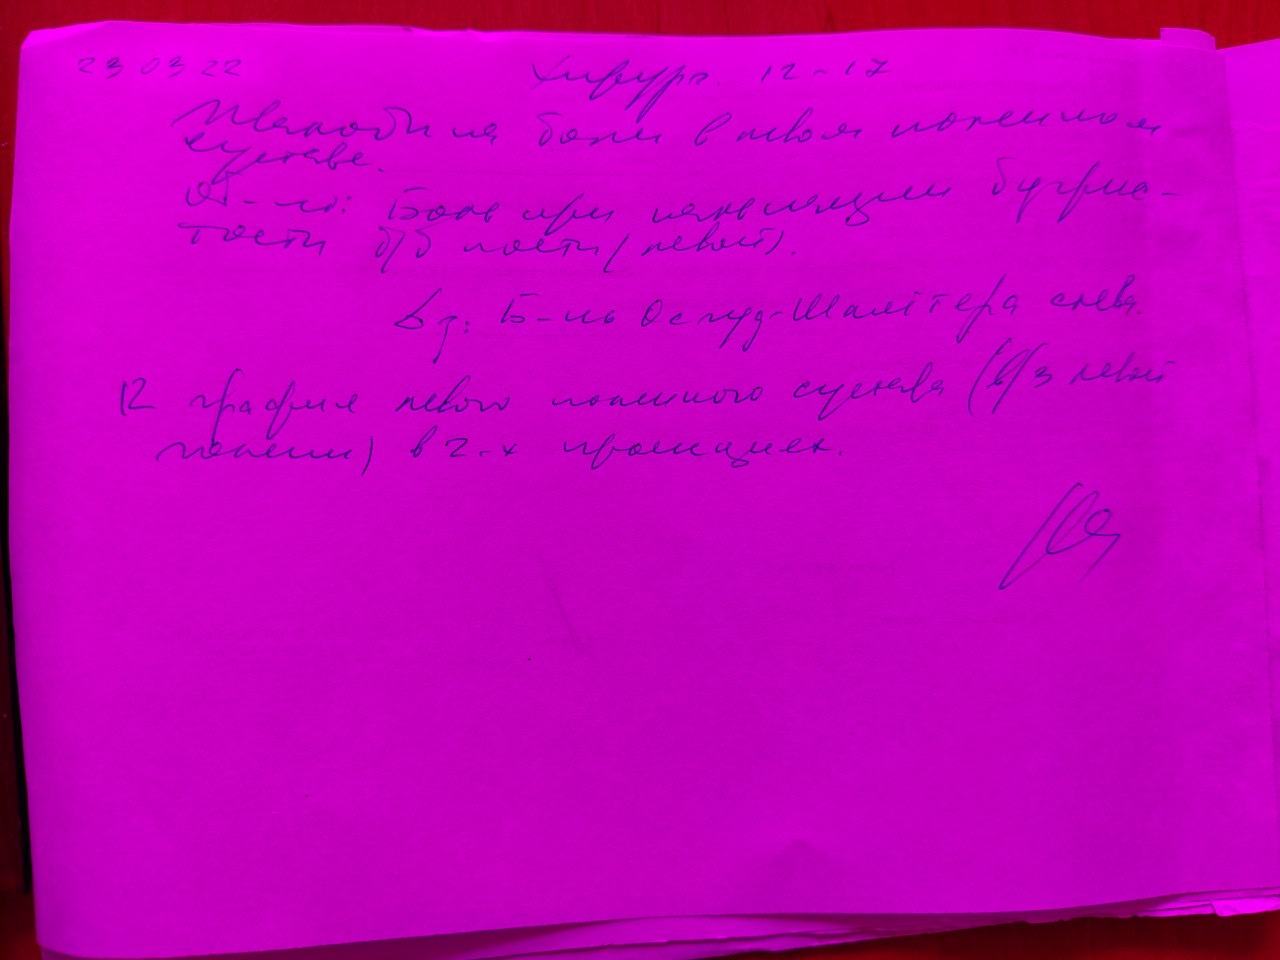 23 03 22 Хирург. 12-17
Жалобы на боли в левом коленном
суставе.
Об-но: Боль при пальпации бугрис-
тости б/б кости (левой).
Дз: Б-нь Осгуд-Шляттера слева.
R графия левого коленного сустава (в/з левой
голени) в 2-х проекциях.